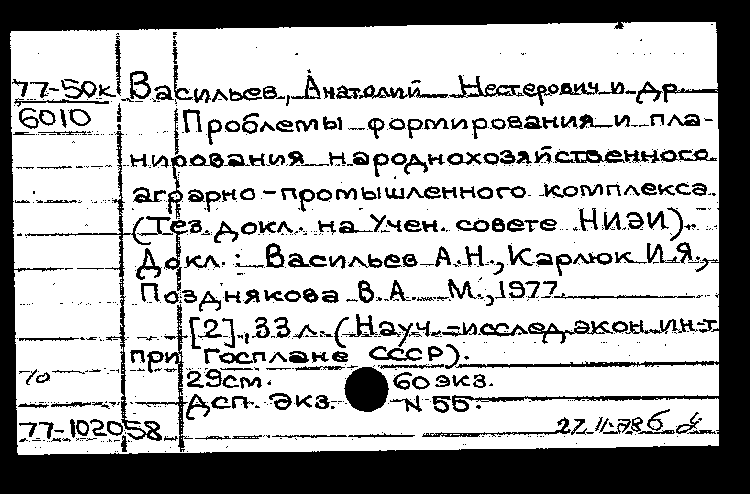 77-50к Васильев, Анатолий Нестерович и др.
6010 Проблемы формирования и пла-
нирования народнохозяйственного
аграрно-промышленного комплекса.
(Тез. докл. на Учен. совете НИЭИ).
Докл.: Васильев А.Н., Карлюк И.Я.,
Позднякова В.А. М., 1977.
[2], 33 л. (Науч.-исслед. экон. ин-т
при Госплане СССР).
10 29см. 60 экз.
Дсп. Экз. N 55.
77-102058 27.11.78